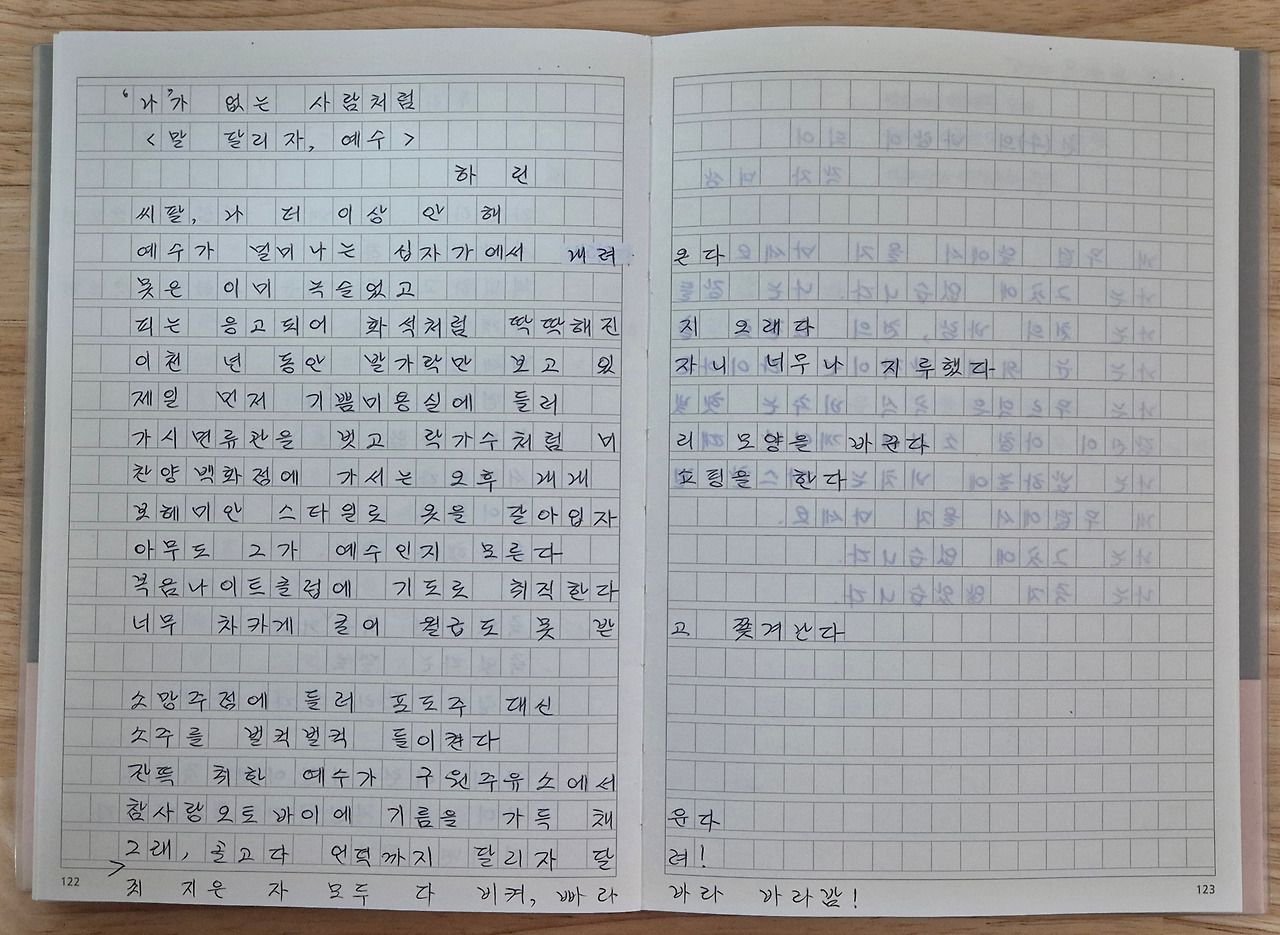 '나'가 없는 사람처럼
<말 달리자, 예수>
하 린
씨팔, 나 더 이상 안 해
예수가 멀미나는 십자가에서 내려온다
못은 이미 녹슬었고
피는 응고되어 화석처럼 딱딱해진지 오래다
이천 년 동안 발가락만 보고 있자니 너무나 지루했다
제일 먼저 기쁨미용실에 들러
가시면류관을 벗고 락가수처럼 머리 모양을 바꾼다
찬양백화점에 가서는 오후 내내 쇼핑을 한다
보헤미안 스타일로 옷을 갈아입자
아무도 그가 예수인지 모른다
복음나이트클럽에 기도로 취직한다
너무 차카게 굴어 월급도 못 받고 쫓겨난다
소망주점에 들러 포도주 대신
소주를 벌컥벌컥 들이켠다
잔뜩 취한 예수가 구원주유소에서
참사랑오토바이에 기름을 가득 채운다
그래, 골고다 언덕까지 달리자 달려!
죄 지은 자 모두 다 비켜, 빠라바라 바라밤!
122
123